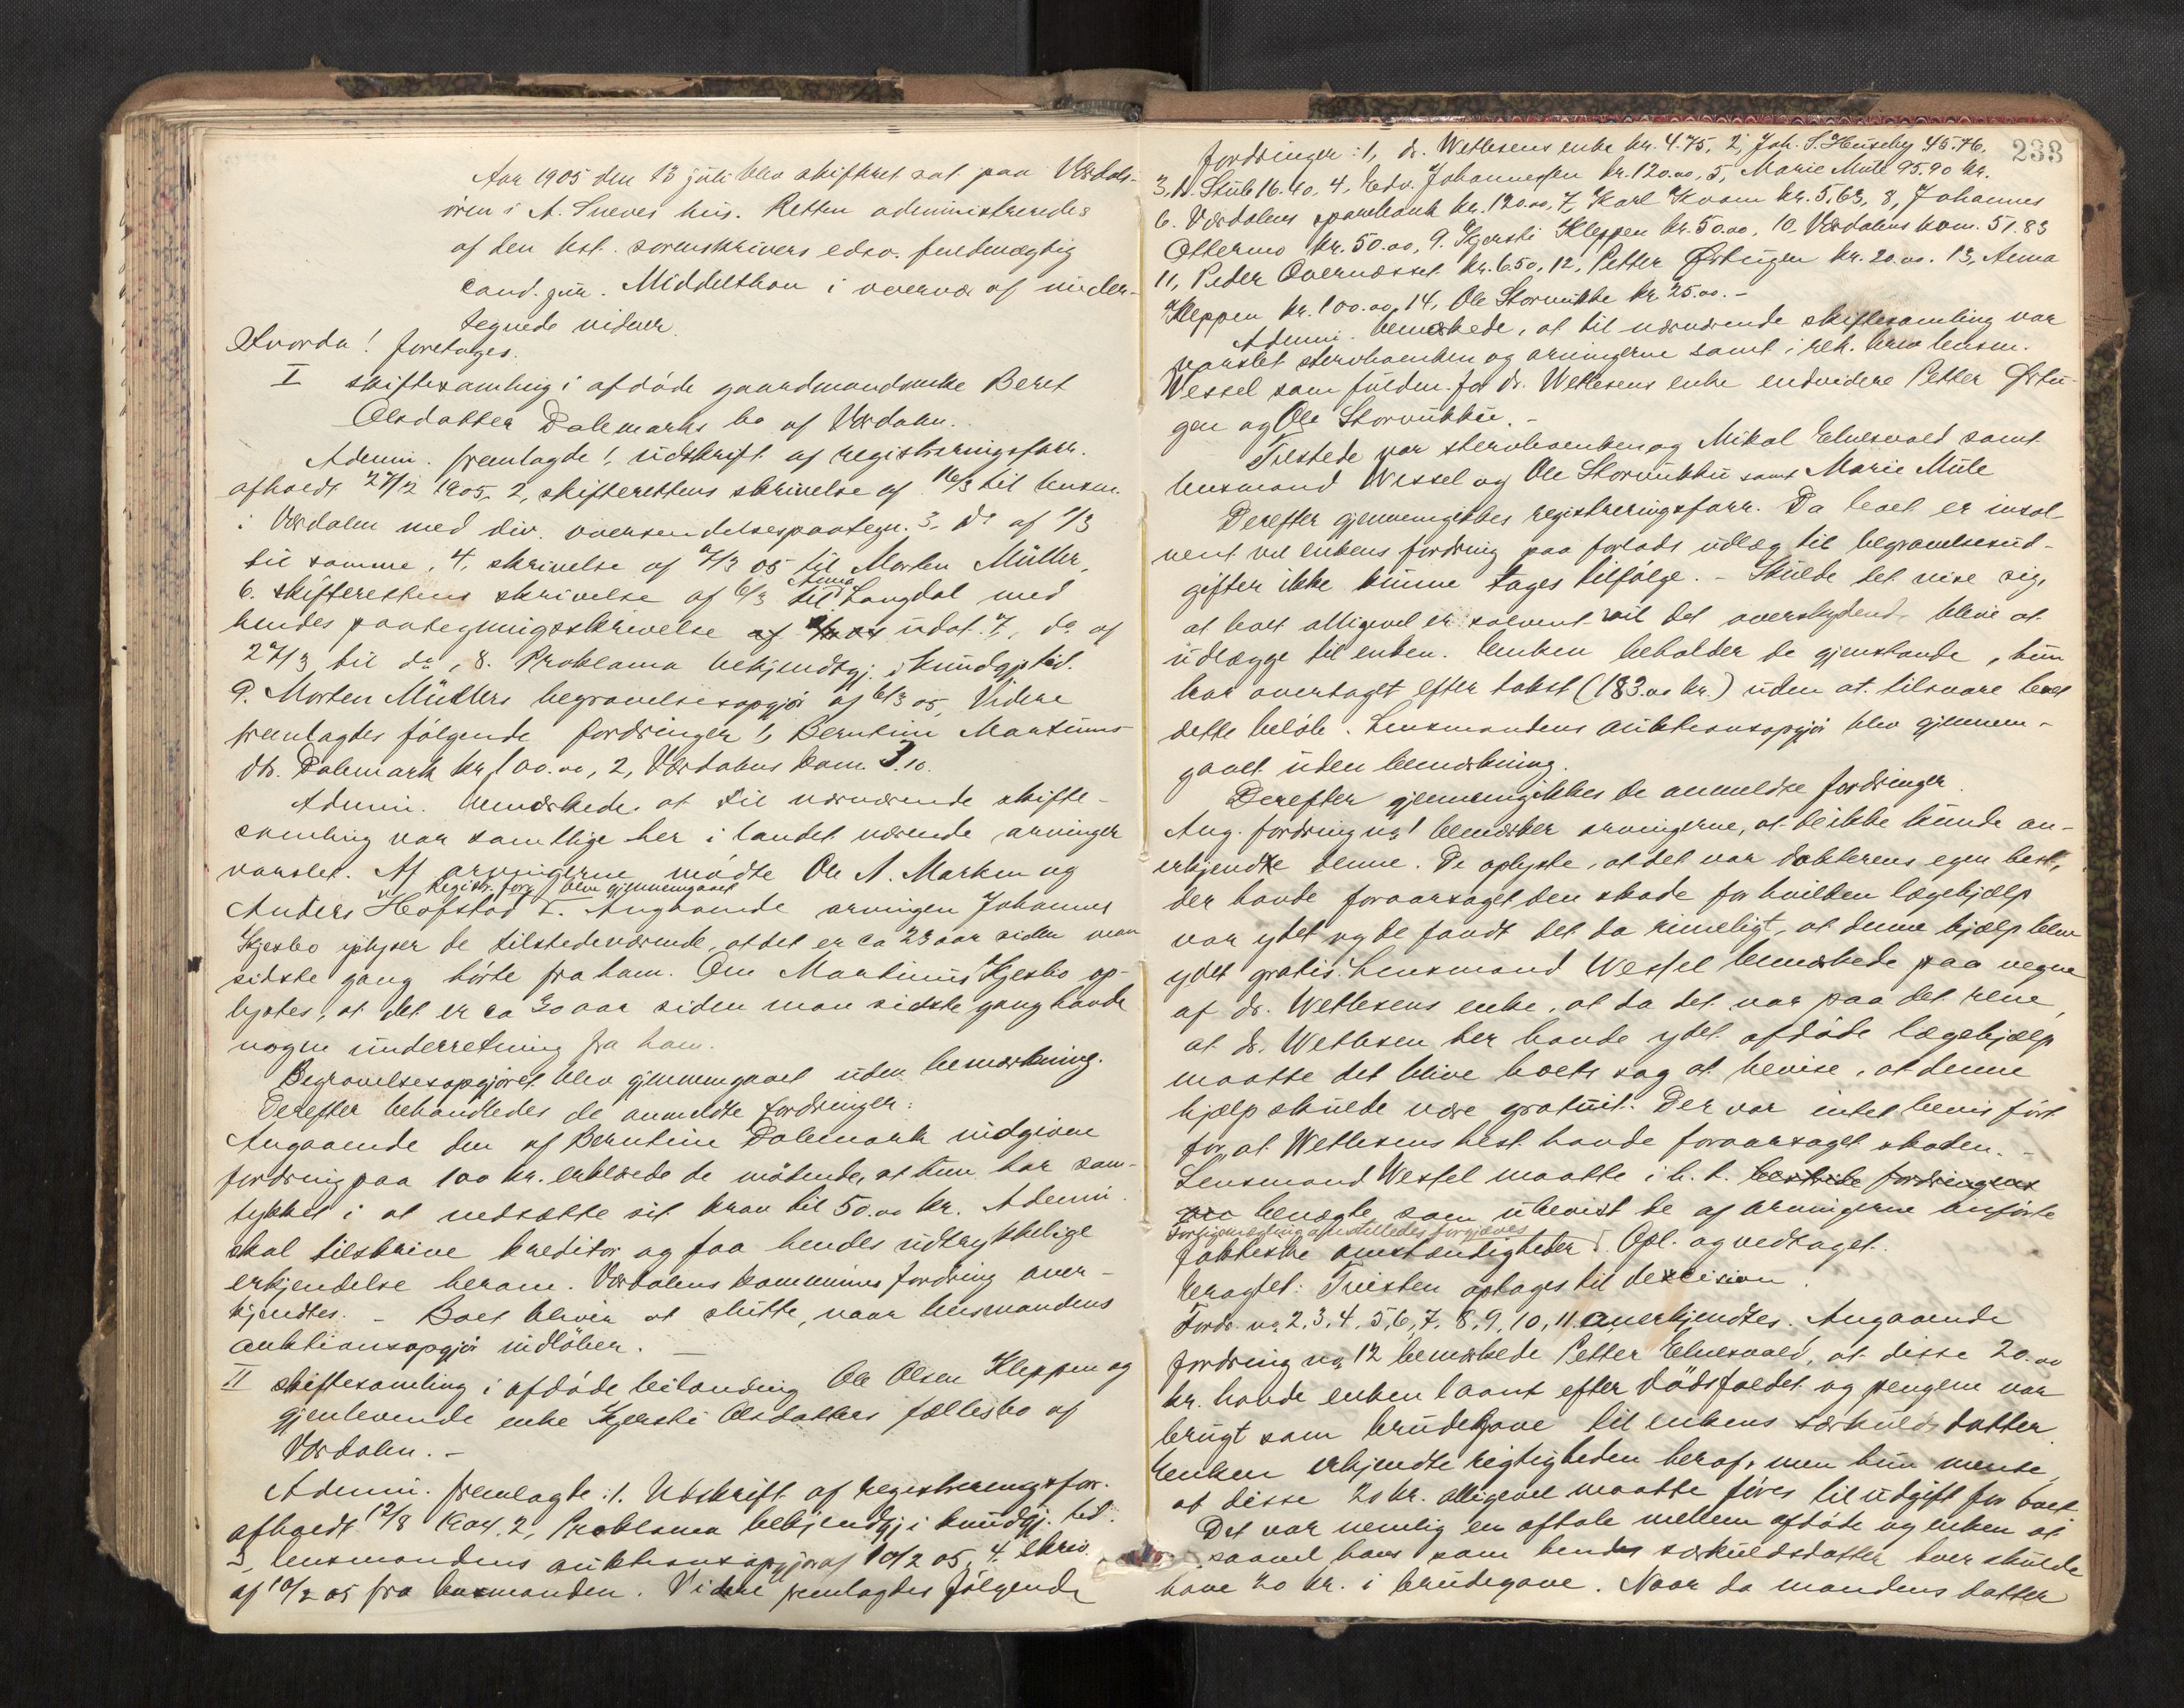 Aar 1905 den 13 juli blev skifteret sat paa Værdals-
øren i A. Sneves hus. Retten administreredes
af den kst. sorenskrivers edsv. fuldmægtig
cand. jur. Middelthon i overvær af under-
tegnede vidner.
Hvorda! foretages.
I skiftesamling i afdøde gaardmandsenke Beret
Olsdatter Dalemarks bo af Værdalen.
Admin. fremlagde 1, udskrift af registreringsforr.
afholdt 27/2 1905, 2, skifterettens skrivelse af 16/3 til lensm.
i Værdalen med div. oversendelsespaategn. 3, do af 1/3
til samme, 4, skrivelse af 7/3 05 til Morten Müller,
6. skifterettens skrivelse af 6/3 til Anna Langdal med
hendes paategningsskrivelse udat. 7, do af
27/3 til do, 8. Proklama bekjendtgj. i kundgj. tid.
9. Morten Müllers begravelsesopgjør af 6/3 05, Videre
fremlagdes følgende fordringer 1, Berntine Martinus
dtr. Dalemark kr. 100.00, 2, Værdalens kom. 3.10.
Admin. bemærkede, at til nærværende skifte-
samling var samtlige her i landet værende arvinger
varslet. Af arvingerne mødte Ole A. Marken og
Registr. forr. blev gjennemgaaet
Anders Hofstad. Angaaende arvingen Johannes
Kjesbo oplyser de tilstedeværende, at det er ca 23 aar siden man
sidste gang hørte fra ham. Om Martinus Kjesbo op-
lystes, at det er ca 30 aar siden man sidste gang havde
nogen underretning fra ham.
Begravelsesopgjøret blev gjennemgaaet uden bemærkning.
Derefter behandledes de anmeldte fordringer:
Angaaende den af Berntine Dalemark indgivne
fordring paa 100 kr. erklærede de mødende, at hun har sam-
tykket i at nedsætte sit krav til 50.00 kr. Admin.
skal tilskrive kreditor og faa hendes udtrykkelige
erkjendelse herom. Værdalens kommunes fordring aner-
kjendtes. - Boet bliver at slutte, naar lensmandens
auktionsopgjør indløber.
II skiftesamling i afdøde leilænding Ole Olsen Kleppen og
gjenlevende enke Kjersti Olsdatters fællesbo af
Værdalen. -
Admin. fremlagde: 1. Udskrift af registreringsfor.
afholdt 12/8 1904. 2, Proklama bekjendtgj i kundgj. tid.
3, lensmandens auktionsopgjør af 10/2 05, 4. skriv.
af 10/2 05 fra lensmanden. Videre fremlagdes følgende
233
fordringer: 1, dr. Wetlesens enke kr. 4.75, 2, Joh. S. Huseby 45.76,
3. N. Stub 16.40, 4, Edv. Johannesen kr. 120.00, 5, Marie Mule 95.90 kr.
6. Værdalens sparebank kr. 120.00, 7, Karl Kvam kr. 5,63, 8, Johannes
Ottermo kr. 50.00, 9. Kjersti Kleppen kr. 50.00, 10. Værdalens kom. 51.83
11, Peder Overnæsset kr. 6.50, 12, Petter Østugen kr. 20.00. 13, Anna
Kleppen kr. 100.00, 14, Ole Storvukke kr. 25.00. -
Admin. bemærkede, at til nærværende skiftesamling var
varslet stervboenken og arvingerne samt i rek. brev lensm.
Wessel som fuldm. for dr. Wetlesens enke endvidere Petter Østu-
gen og Ole Storvukku. -
Tilstede var stervboenken og Mikal Elnesvald samt
lensmand Wessel og Ole Storvukku samt Marie Mule
Derefter gjennemgikkes registreringsforr. Da boet er insol-
vent vil enkens fordring paa forlods udlæg til begravelsesud-
gifter ikke kunne tages tilfølge. - Skulde det vise sig,
at boet alligevel er solvent vil det overskydende blive at
udlægge til enken. Enken beholder de gjenstande, hun
har overtaget efter takst (183.00 kr.) uden at tilsvare boet
dette beløb. Lensmandens auktionsopgjør blev gjennem-
gaaet uden bemærkning.
Derefter gjennemgikkes de anmeldte fordringer.
Ang. fordring no 1 bemærker arvingerne, at de ikke kunde an-
erkjendte denne. De oplyste, at det var doktorens egen hest,
der havde foraarsaget den skade for hvilken lægehjælp
var ydet og de fandt det da rimeligt, at denne hjælp blev
ydet gratis. Lensmand Wessel bemærkede paa vegne
af dr. Wetlesens enke, at da det var paa det rene,
at dr. Wetlesen her havde ydet afdøde lægehjælp
maatte det blive boets sag at bevise, at denne
hjælp skulde være gratuit. Der var intet bevis ført
for, at Wetlesens hest havde foraarsaget skaden. -
Lensmand Wessel maatte i h. t. bestride fordringens
benægte som ubevist de af arvingerne anførte
Forligsmægling anstilledes forgjæves
faktiske omstændigheder. Opl. og vedtaget.
Eragtet: Tvisten optages til decision.
Fordr. no 2, 3, 4, 5, 6, 7, 8, 9, 10, 11 anerkjendtes. Angaaende
fordring no 12 bemærkede Petter Elnesvald, at disse 20.00
kr. havde enken laant efter dødsfaldet og pengene var
brugt som brudegave til enkens særkuldsdatter.
Enken erkjendte rigtigheden heraf, men hun mente,
at disse 20 kr. alligevel maatte føres til udgift for boet.
Det var nemlig en aftale mellem afdøde og enken at
saavel hans som hendes særkuldsdatter hver skulde
have 20 kr. i brudegave. Naar da mandens datter